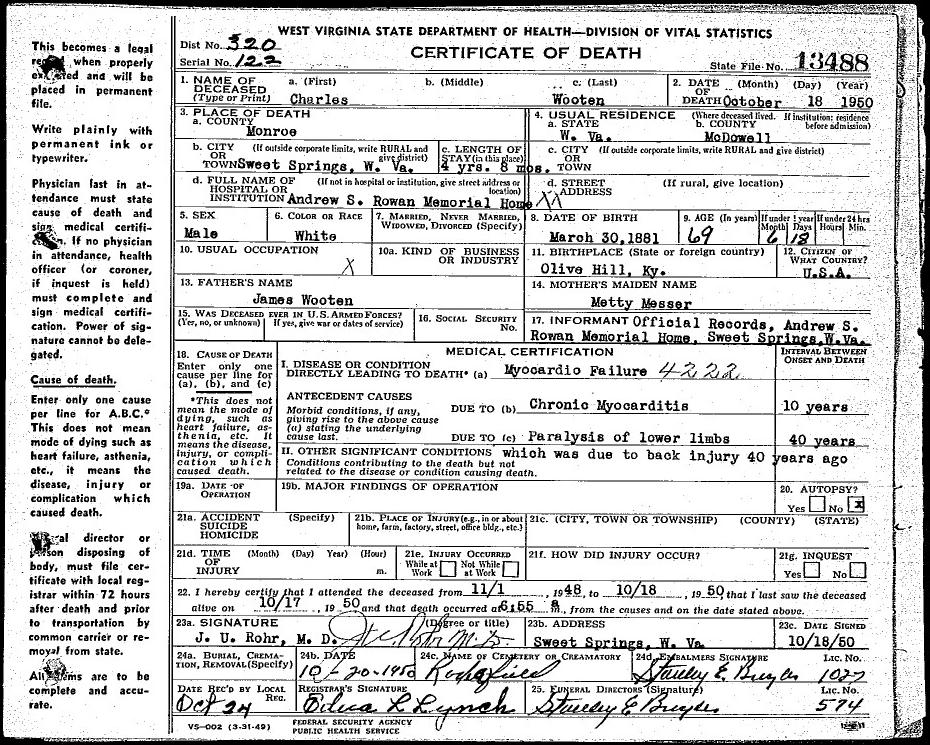 WEST VIRGINIA STATE DEPARTMENT OF HEALTH—DIVISION OF VITAL STATISTICS
Dist No. 320
CERTIFICATE OF DEATH
Serial No. 122
State File No. 13488
This becomes a legal
when properly
and will be
placed in permanent
file.
Write plainly with
permanent ink or
typewriter.
Physician last in at-
tendance must state
cause of death and
sign medical certifi-
If no physician
in attendance, health
officer (or coroner,
if inquest is held)
must complete and
sign medical certifi-
cation. Power of sig-
nature cannot be dele-
gated.
Cause of death.
Enter only one cause
per line for A.B.C.*
This does not mean
mode of dying such as
heart failure, asthenia,
etc., it means the
disease, injury or
complication which
caused death.
director or
person disposing of
body, must file cer-
tificate with local reg-
istrar within 72 hours
after death and prior
to transportation by
common carrier or re-
moval from state.
All items are to be
complete and accu-
rate.
1. NAME OF DECEASED (Type or Print) a. (First) b. (Middle) c. (Last)
Charles Wooten
2. DATE OF DEATH (Month) (Day) (Year)
October 18 1950
3. PLACE OF DEATH
a. COUNTY
Monroe
4. USUAL RESIDENCE (Where deceased lived. If institution: residence before admission)
a. STATE b. COUNTY
W. Va. McDowell
b. CITY OR TOWN (If outside corporate limits, write RURAL and give district)
Sweet Springs, W. Va.
c. LENGTH OF STAY (in this place)
4 yrs. 8 mos.
c. CITY OR TOWN (If outside corporate limits, write RURAL and give district)
d. FULL NAME OF HOSPITAL OR INSTITUTION (If not in hospital or institution, give street address or location)
Andrew S. Rowan Memorial Home
d. STREET ADDRESS (If rural, give location)
XX
5. SEX
Male
6. COLOR OR RACE
White
7. MARRIED, NEVER MARRIED, WIDOWED, DIVORCED (Specify)
8. DATE OF BIRTH
March 30, 1881
9. AGE (In years) If under 1 year Month Days If under 24 hrs Hours Min.
69 6 18
10. USUAL OCCUPATION
X
10a. KIND OF BUSINESS OR INDUSTRY
11. BIRTHPLACE (State or foreign country)
Olive Hill, Ky.
12. CITIZEN OF WHAT COUNTRY?
U.S.A.
13. FATHER'S NAME
James Wooten
14. MOTHER'S MAIDEN NAME
Metty Messer
15. WAS DECEASED EVER IN U.S. ARMED FORCES?
(Yes, no, or unknown) If yes, give war or dates of service)
16. SOCIAL SECURITY No.
17. INFORMANT Official Records, Andrew S.
Rowan Memorial Home, Sweet Springs, W.Va.
18. CAUSE OF DEATH
Enter only one
cause per line for
(a), (b), and (c)
*This does not
mean the mode of
dying, such as
heart failure, as-
thenia, etc. It
means the disease,
injury, or compli-
cation which
caused death.
MEDICAL CERTIFICATION
INTERVAL BETWEEN ONSET AND DEATH
I. DISEASE OR CONDITION
DIRECTLY LEADING TO DEATH* (a) Myocardio Failure 4222
ANTECEDENT CAUSES
Morbid conditions, if any,
giving rise to the above cause
(a) stating the underlying
cause last.
DUE TO (b) Chronic Myocarditis 10 years
DUE TO (c) Paralysis of lower limbs 40 years
II. OTHER SIGNIFICANT CONDITIONS which was due to back injury 40 years ago
Conditions contributing to the death but not
related to the disease or condition causing death.
19a. DATE OF OPERATION
19b. MAJOR FINDINGS OF OPERATION
20. AUTOPSY?
Yes No x
21a. ACCIDENT SUICIDE HOMICIDE (Specify)
21b. PLACE OF INJURY (e.g., in or about home, farm, factory, street, office bldg., etc.)
21c. (CITY, TOWN OR TOWNSHIP) (COUNTY) (STATE)
21d. TIME OF INJURY (Month) (Day) Year) (Hour) m.
21e. INJURY OCCURRED
While at Work Not While at Work
21f. HOW DID INJURY OCCUR?
21g. INQUEST
Yes No
22. I hereby certify that I attended the deceased from 11/1, 1948, to 10/18, 1950 that I last saw the deceased
alive on 10/17, 1950 and that death occurred at 6:55 a m., from the causes and on the date stated above.
23a. SIGNATURE (Degree or title)
J. U. Rohr, M. D.
23b. ADDRESS
Sweet Springs, W. Va
23c. DATE SIGNED
10/18/50
24a. BURIAL, CREMATION, REMOVAL (Specify)
24b. DATE
10-20-1950
24c. NAME OF CEMETERY OR CREAMATORY
24d. EMBALMERS SIGNATURE LIC. NO.
1027
DATE REC'D BY LOCAL REG.
Oct 24
REGISTRAR'S SIGNATURE
Edna L Lynch
25. FUNERAL DIRECTORS (Signature) LIC. NO.
574
VS-002 (3-31-49)
FEDERAL SECURITY AGENCY
PUBLIC HEALTH SERVICE